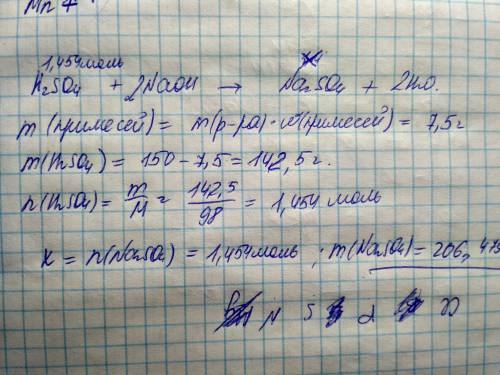 Mn +
1,454 моль
H₂SO₄ + 2NaOH → Na₂SO₄ + 2H₂O.
m (примесей) = m(р-ра)·w(примесей) = 7,5 г
m(H₂SO₄) = 150 - 7,5 = 142,5 г.
n(H₂SO₄) = m/M = 142,5/98 = 1,454 моль
x = n(Na₂SO₄) = 1,454 моль ; m(Na₂SO₄) = 206,47